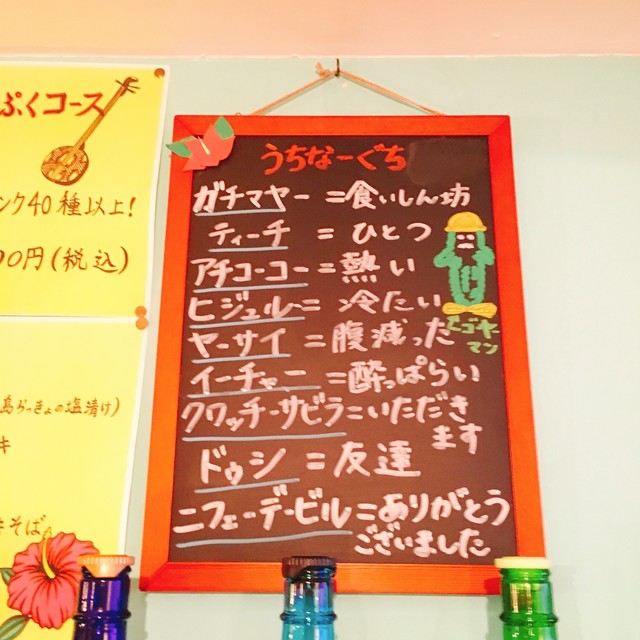 ぷくコース
ンク40種以上!
00円(税込)
島らっきょの塩漬け)
キ
きそば
うちなーぐち
ガチマヤー=食いしん坊
ティーチ=ひとつ
アチコーコー=熱い
ヒジュル=冷たい
ヤーサイ=腹減った
イーチャー=酔っぱらい
クワッチーサビラ=いただき
ます
ドゥシ=友達
ニフェーデービル=ありがとう
ございました
ゴーヤー
マン